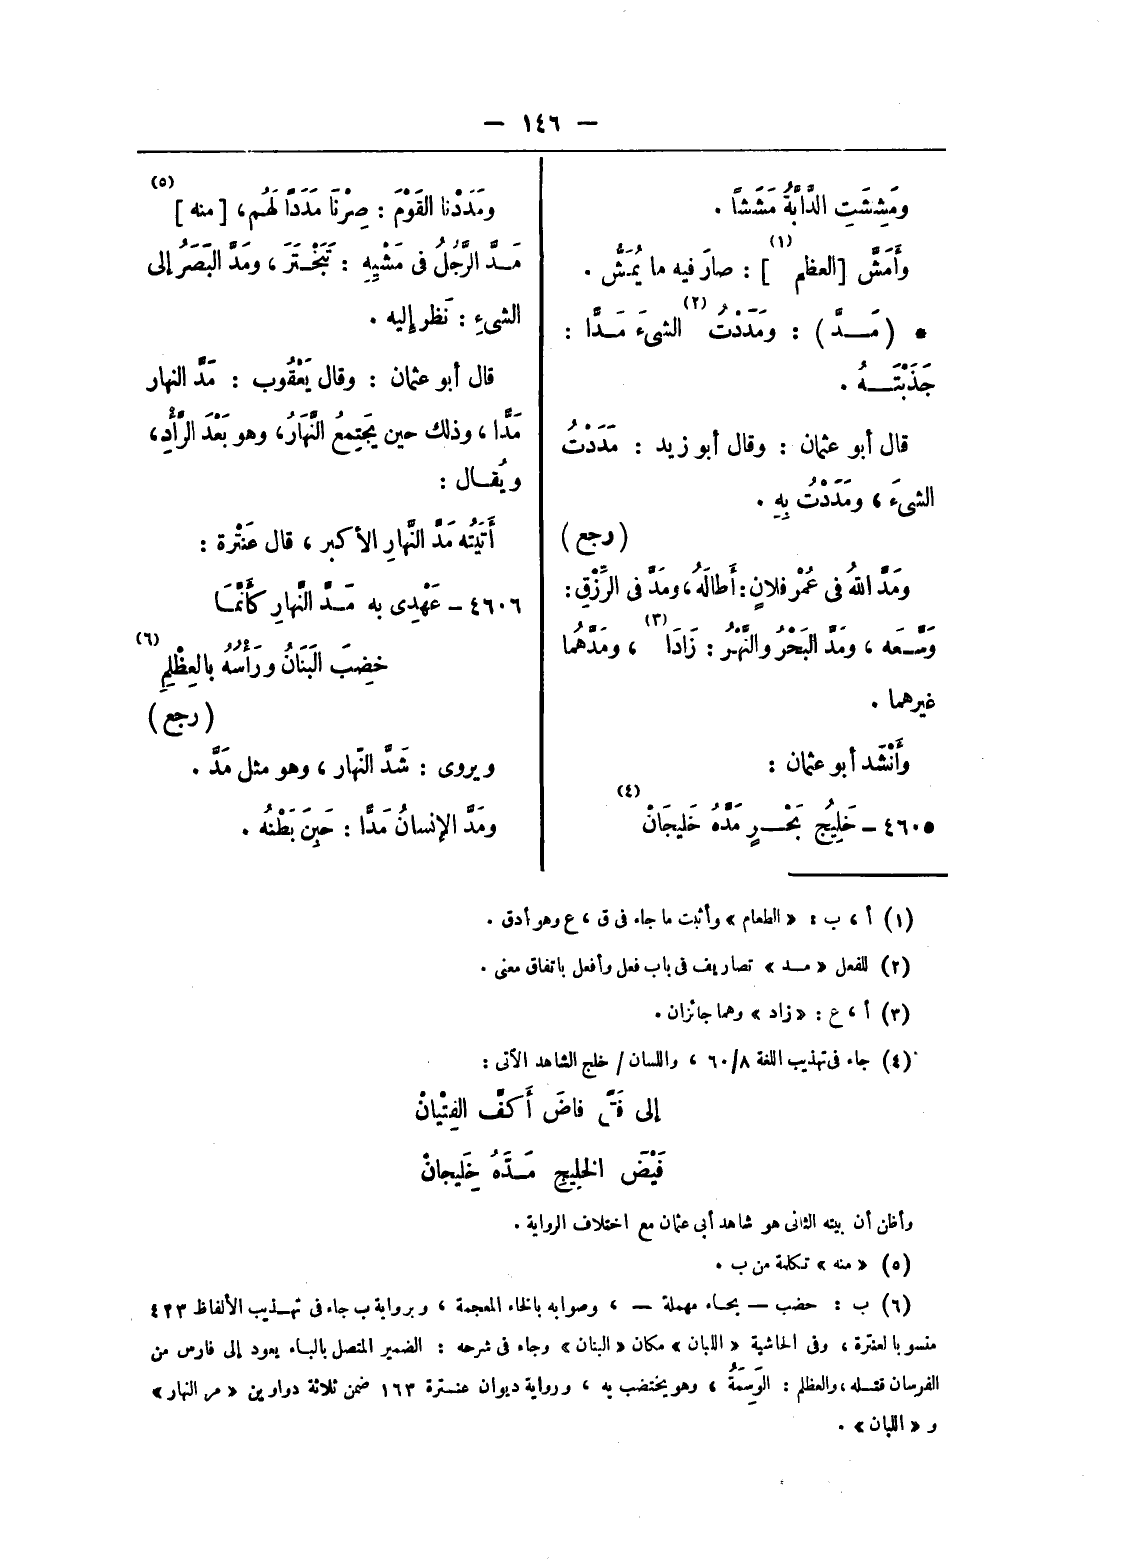 — ١٤٦ —
ومَشِشَتِ الدَّابَّةُ مَشَشًا .
وأَمَشَّ [العظم (١)] : صارَ فيه ما يُمَشُّ .
• (مَــدَّ) : ومَدَدْتُ (٢) الشىءَ مَــدًّا :
جَذَبْتَــهُ .
قال أبو عثمان : وقال أبو زيد : مَدَدْتُ
الشىءَ ، ومَدَدْتُ بِهِ .
(رجع)
ومَدَّ اللهُ فى عُمْرِ فلانٍ : أَطالَهُ ، ومَدَّ فى الرِّزْقِ :
وَسَّــعَه ، ومَدَّ البَحْرُ والنَّهْرُ : زَادَا (٣) ، ومَدَّهُما
غيرهما .
وأَنْشَد أبو عثمان :
٤٦٠٥ – خَلِيجُ بَحْــرٍ مَدَّهُ خَليجَانْ (٤)
ومَدَدْنا القَوْمَ : صِرْنَا مَدَدًا لَهُم ، [ منه ] (٥)
مَــدَّ الرَّجُلُ فى مَشْيِهِ : تَبَخْــتَرَ ، ومَدَّ البَصَرُ إلى
الشىءِ : نَظر إليه .
قال أبو عثمان : وقال يَعْقُوب : مَدَّ النهار
مَدًّا ، وذلك حين يَجْتِمعُ النَّهَارُ ، وهو بَعْدَ الرَّأْدِ ،
ويُقــال :
أَتَيْتُه مَدَّ النَّهارِ الأكبر ، قال عَنْترة :
٤٦٠٦ – عَهْدِى به مَــدَّ النَّهارِ كَأَنَّمَا
خضِبَ البَنَانُ ورَأْسُهُ بالعِظْلِمِ (٦)
(رجع)
ويروى : شَدَّ النّهار ، وهو مثل مَدَّ .
ومَدَّ الإنسانُ مَدًّا : حَبِنَ بَطْنُه .
(١) أ ، ب : « الطعام » وأثبت ما جاء فى ق ، ع وهو أدق .
(٢) للفعل « مــد » تصاريف فى باب فعل وأفعل باتفاق معنى .
(٣) أ ، ع : « زاد » وهما جائزان .
(٤) جاء فى تهذيب اللغة ٨/٦٠ ، واللسان / خلج الشاهد الآتى :
إلى فَتًى فاضَ أَكفَّ الفِتْيانْ
فَيْضَ الخليِجِ مَــدَّهُ خَلِيجانْ
وأظن أن بيته الثانى هو شاهد أبى عثمان مع اختلاف الرواية .
(٥) « منه » تكملة من ب .
(٦) ب : حضب — بحــاء مهملة — ، وصوابه بالخاء المعجمة ، وبرواية ب جاء فى تهــذيب الألفاظ ٤٢٣
منسوبا لعنترة ، وفى الحاشية « اللبان » مكان « البنان » وجاء فى شرحه : الضمير المتصل بالبــاء يعود إلى فارس من
الفرسان قتــله ، والعظلم : الوَسِمَةُ ، وهو يختضب به ، ورواية ديوان عنــترة ١٦٣ ضمن ثلاثة دواوين « مر النهار »
و « اللبان » .